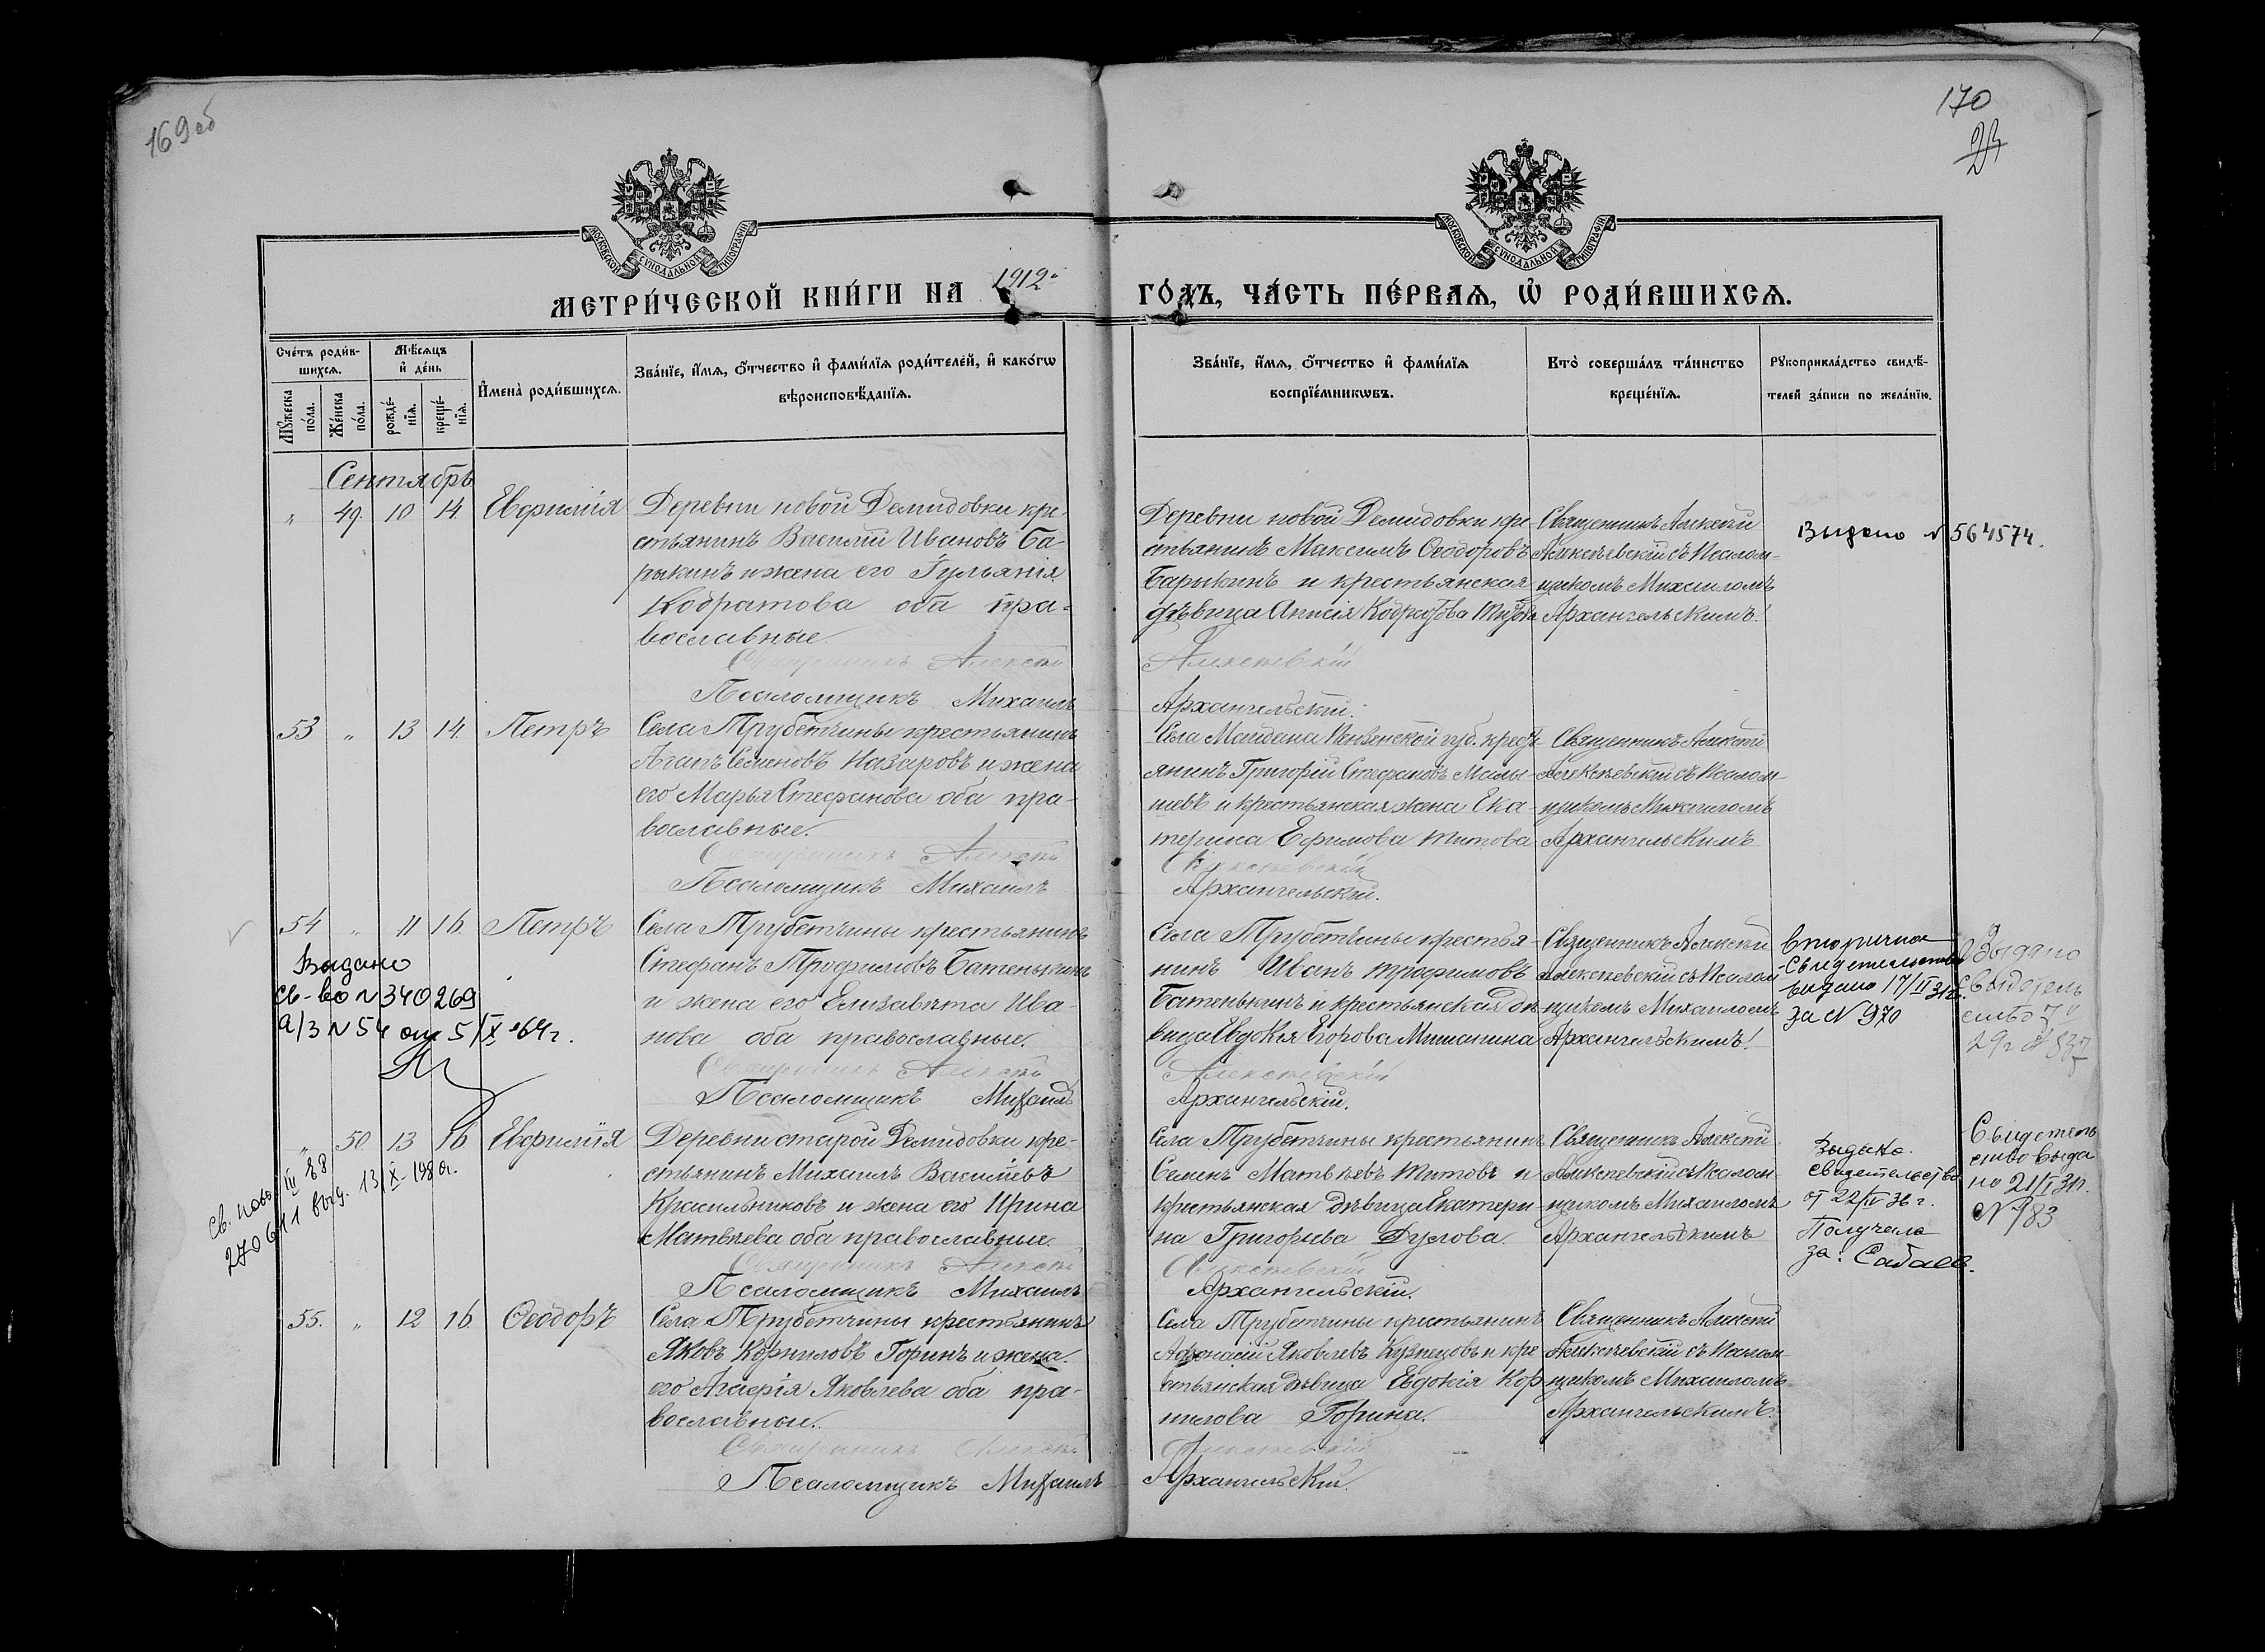 169об
170
23
МОСКОВСКОЙ СѴНОДАЛЬНОЙ ТИПОГРАФІИ
МОСКОВСКОЙ СѴНОДАЛЬНОЙ ТИПОГРАФІИ
МЕТРИ́ЧЕСКОЙ КНИ́ГИ НА 1912й ГО́ДЪ, ЧА́СТЬ ПЕ́РВАѦ, Ѡ РОДИ́ВШИХСѦ.
Сче́тъ роди́в-
шихсѧ.
Мѣ́сѧцъ
и҆ де́нь
И҆мена̀ роди́вшихсѧ.
Зва́нїе, и҆́мѧ, ѻ҆́тчество и҆ фами́лїѧ роди́телей, и҆ како́гѡ
вѣроисповѣ́данїѧ.
Мꙋ́жеска
по́ла.
Же́нска
по́ла.
рожде́-
нїѧ.
креще́-
нїѧ.
Зва́нїе, и҆́мѧ, ѻ҆́тчество и҆ фами́лїѧ
воспрїе́мникѡвъ.
Кто̀ соверша́лъ та́инство
креще́нїѧ.
Рꙋкоприкла́дство свидѣ́-
телей за́писи по жела́нїю.
Сентябрь
" 49. 10 14. Евфимія
Деревни новой Демидовки кре-
стьянинъ Василій Ивановъ Ба-
рыкинъ и жена его Іульянія
Кодратова оба пра-
вославные.
Священникъ Алексѣй
Псаломщикъ Михаилъ
Деревни новой Демидовки кре-
стьянинъ Максимъ Ѳеодоровъ
Барыкинъ и крестьянская
дѣвица Анисія Кодратова Титова
Алексѣевскій
Архангельскій.
Священникъ Алексѣй
Алексѣевскій съ Псалом-
щикомъ Михаиломъ
Архангельскимъ.
Выдано № 564574.
53 " 13 14. Петръ
Села Трубетчины крестьянинъ
Агапъ Семеновъ Назаровъ и жена
его Марья Стефанова оба пра-
вославные.
Священникъ Алексѣй
Псаломщикъ Михаилъ
Села Майдана Пензенской губ. крест-
янинъ Григорій Стефановъ Малы-
шевъ и крестьянская жена Ека-
терина Ефимова Титова
Алексѣевскій
Архангельскій.
Священникъ Алексѣй
Алексѣевскій съ Псалом-
щикомъ Михаиломъ
Архангельскимъ
54 " 11 16. Петръ
Выдано
св-во № 340269
а/з № 54 от 5/X-64г.
Села Трубетчины крестьянинъ
Стефанъ Трофимовъ Батенькинъ
и жена его Елизавета Ива-
нова оба православные.
Священникъ Алексѣй
Псаломщикъ Михаилъ
Села Трубетчины крестья-
нинъ Иванъ Трофимовъ
Батенькинъ и крестьянская дѣ-
вица Евдокія Егорова Мишанина
Алексѣевскій
Архангельскій.
Священникъ Алексѣй
Алексѣевскій съ Псалом-
щикомъ Михаиломъ
Архангельскимъ.
Вторично
свидетельство
выдано 17/II 31г.
за № 970
Выдано
свидетель
ство
29г № 837
" 50 13 16 Евфимія
Св. повт. III
270611 выд. 13/X-198
Деревни старой Демидовки кре-
стьянинъ Михаилъ Васильевъ
Красильниковъ и жена его Ирина
Матвѣева оба православные.
Священникъ Алексѣй
Псаломщикъ Михаилъ
Села Трубетчины крестьянинъ
Семенъ Матвѣевъ Титовъ и
крестьянская дѣвица Екатери-
на Григорьева Дуслова.
Алексѣевскій
Архангельскій.
Священникъ Алексѣй
Алексѣевскій съ Псалом-
щикомъ Михаиломъ
Архангельскимъ
Выдано.
свидетельство
от 22/IV 36 г.
Получела
за: Сабаев.
Свидетель
ство выда
но 21/I 31г.
№ 783
55. " 12 16. Ѳеодоръ
Села Трубетчины крестьянинъ
Яковъ Корниловъ Горинъ и жена
его Агаѳія Яковлева оба пра-
вославные.
Священникъ Алексѣй
Псаломщикъ Михаилъ
Села Трубетчины крестьянинъ
Аѳонасій Яковлевъ Кузнецовъ и кре-
стьянская дѣвица Евдокія Кор-
нилова Горина.
Алексѣевскій
Архангельскій.
Священникъ Алексѣй
Алексѣевскій съ Псалом-
щикомъ Михаиломъ
Архангельскимъ.